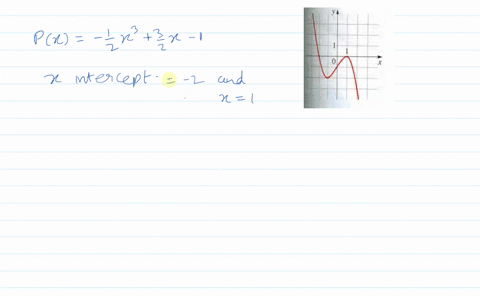 P(x) = -1/2 x³ + 3/2 x - 1
x intercept = -2 and
x = 1
y
1
0 1 x